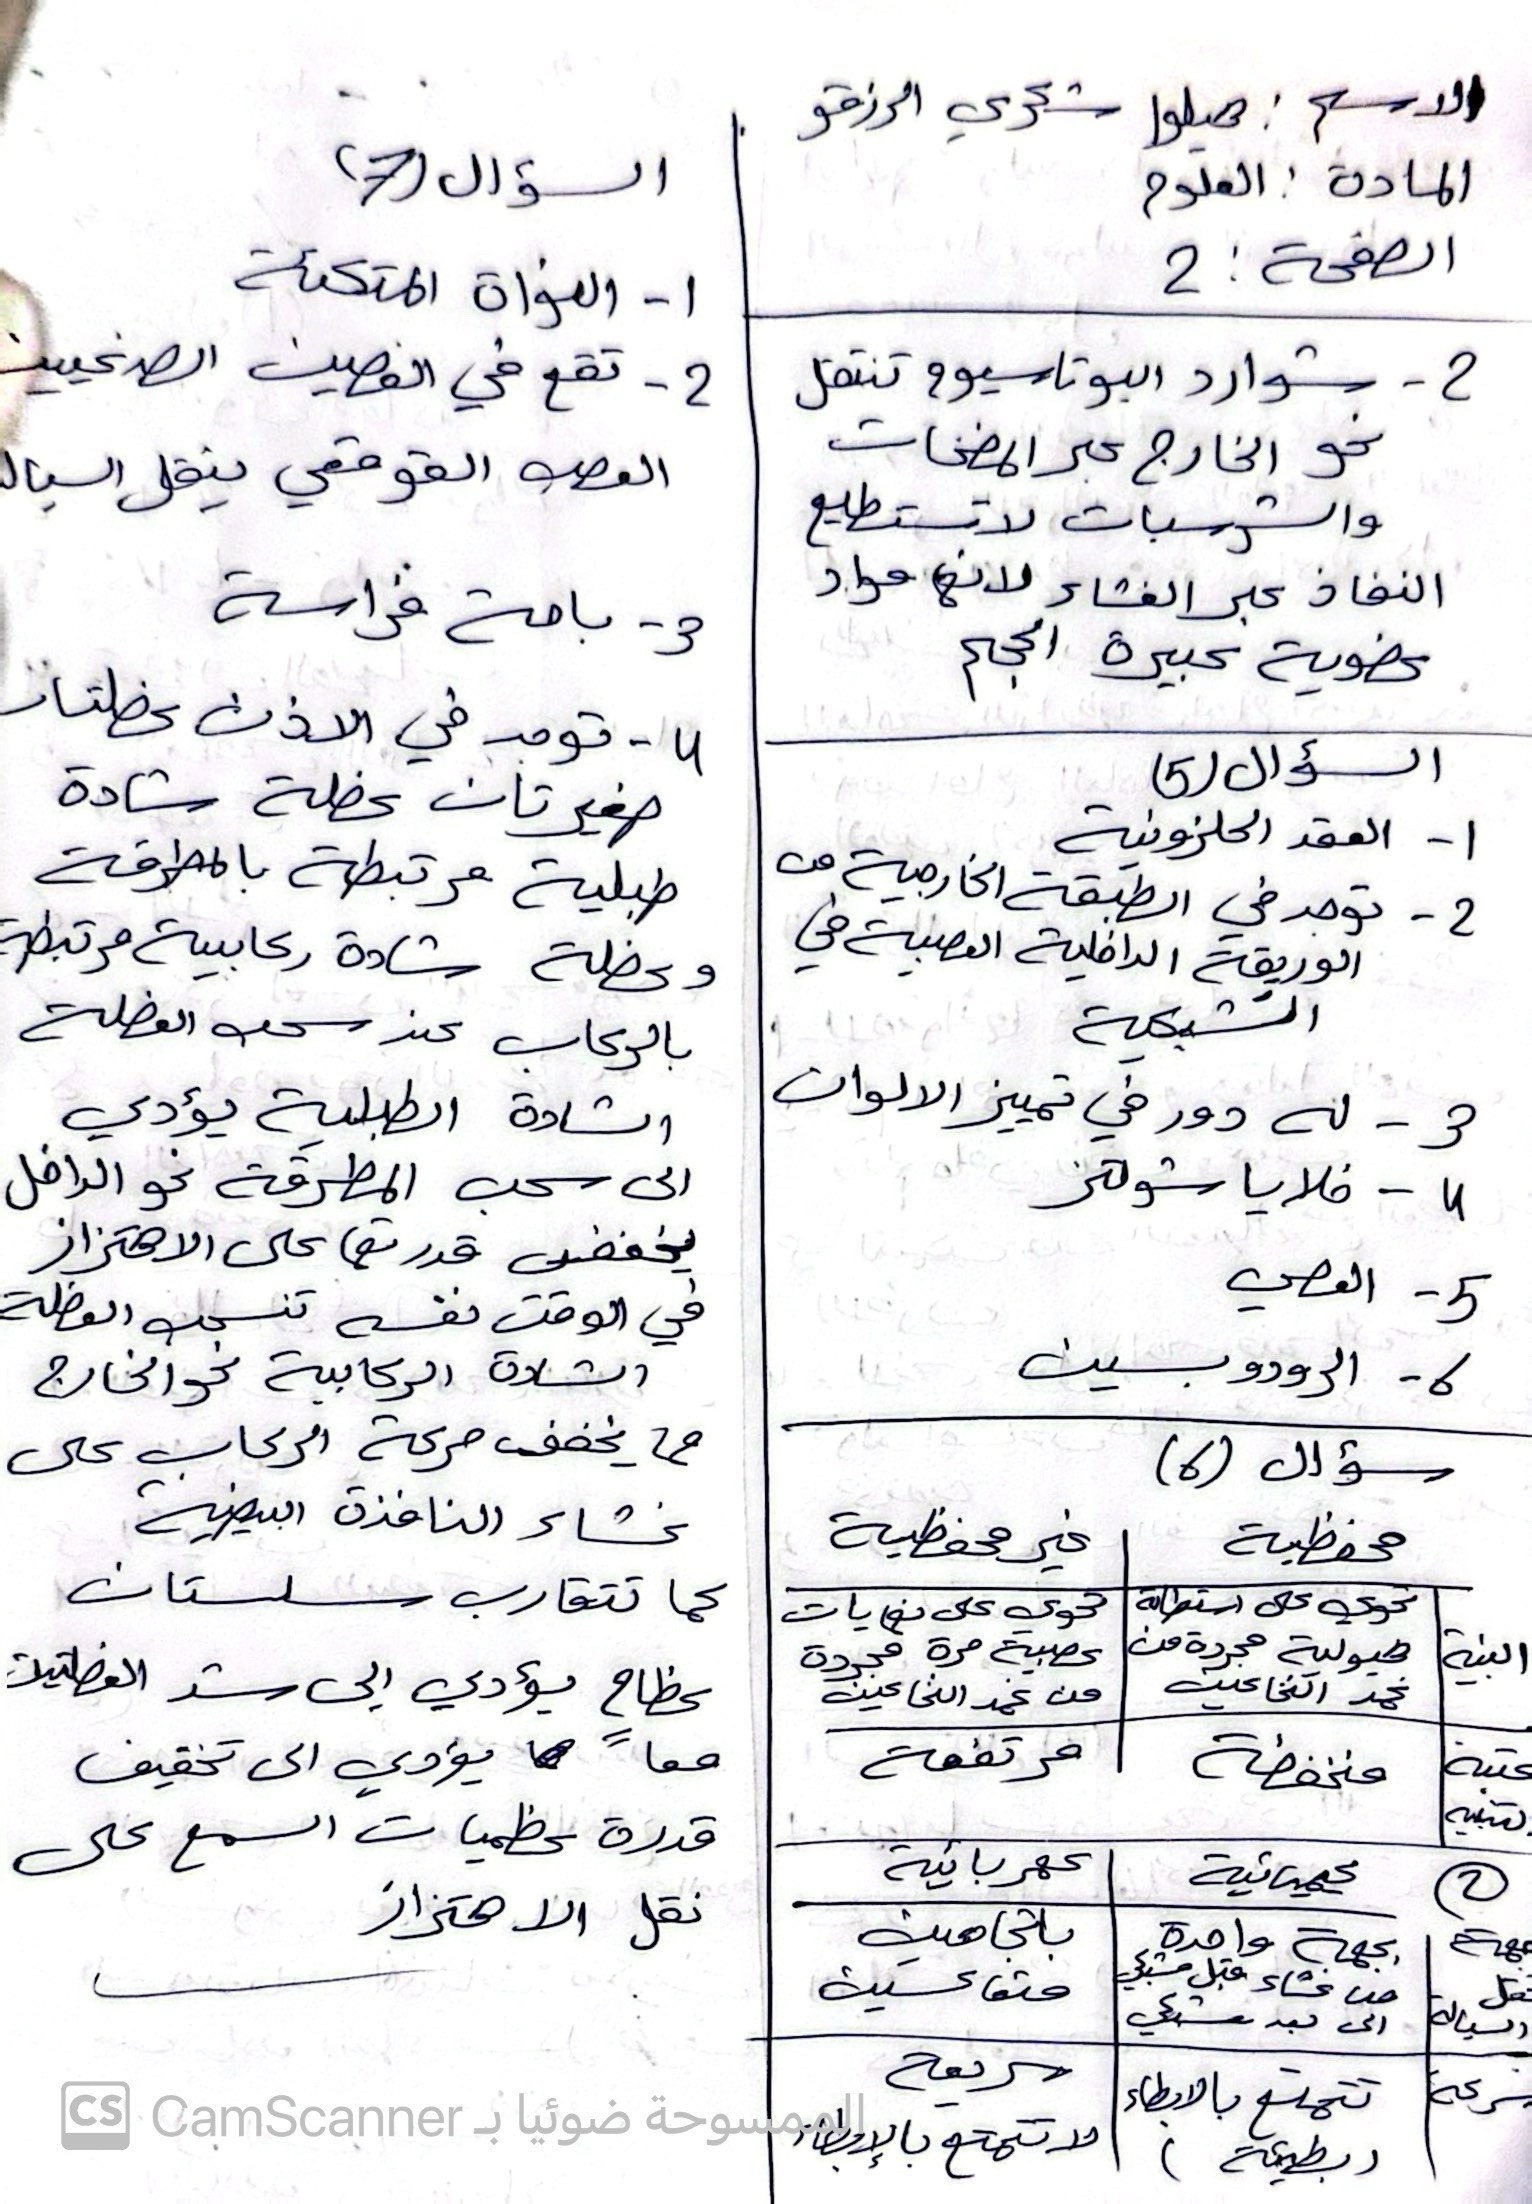 الاسم : صيلوا شكري الرزقو
المادة : العلوم
الصفحة : 2
2 - شوارد البوتاسيوم تنتقل
نحو الخارج عبر المضخات
والشرسبات لا تستطيع
النفاذ عبر الغشاء لانها مواد
عضوية كبيرة الحجم
السؤال (5)
1 - العقد الحلزونية
2 - توجد في الطبقة الخارجية من
الوريقة الداخلية العصبية في
الشبكية
3 - له دور في تمييز الالوان
4 - خلايا شولتز
5 - العصي
6 - الرودوبسين
سؤال (6)
محفظية | غير محفظية
البنية | تحوي على استطالة | تحوي على نهايات
هيولية مجردة من | عصبية حرة مجردة
غمد النخاعين | من غمد النخاعين
عتبة | منخفضة | مرتفعة
تنبيه
2 | كيميائية | كهربائية
جهة | بجهة واحدة | باتجاهين
نقل | من غشاء قبل مشبكي | متعاكسين
السيالة | الى بعد مشبكي
سرعة | تتمتع بالابطاء | سريعة
(بطيئة) | لا تتمتع بالإبطاء
السؤال (7)
1 - النواة المتكئة
2 - تقع في الفصين الصدغيين
العصب القوقعي ينقل السيالة
3 - باحة فراسة
4 - توجد في الاذن عضلتان
صغيرتان عضلة شادة
طبلية مرتبطة بالمطرقة
وعضلة شادة ركابية مرتبطة
بالركاب عند سحب العضلة
الشادة الطبلية يؤدي
الى سحب المطرقة نحو الداخل
يخفض قدرتها على الاهتزاز
في الوقت نفسه تنسحب العضلة
الشادة الركابية نحو الخارج
مما يخفف حركة الركاب على
غشاء النافذة البيضية
كما تتقارب سلستان
عظام يؤدي إلى شد العضلتين
معاً يؤدي الى تخفيف
قدرة عظيمات السمع على
نقل الاهتزاز
CS CamScanner الممسوحة ضوئيا بـ